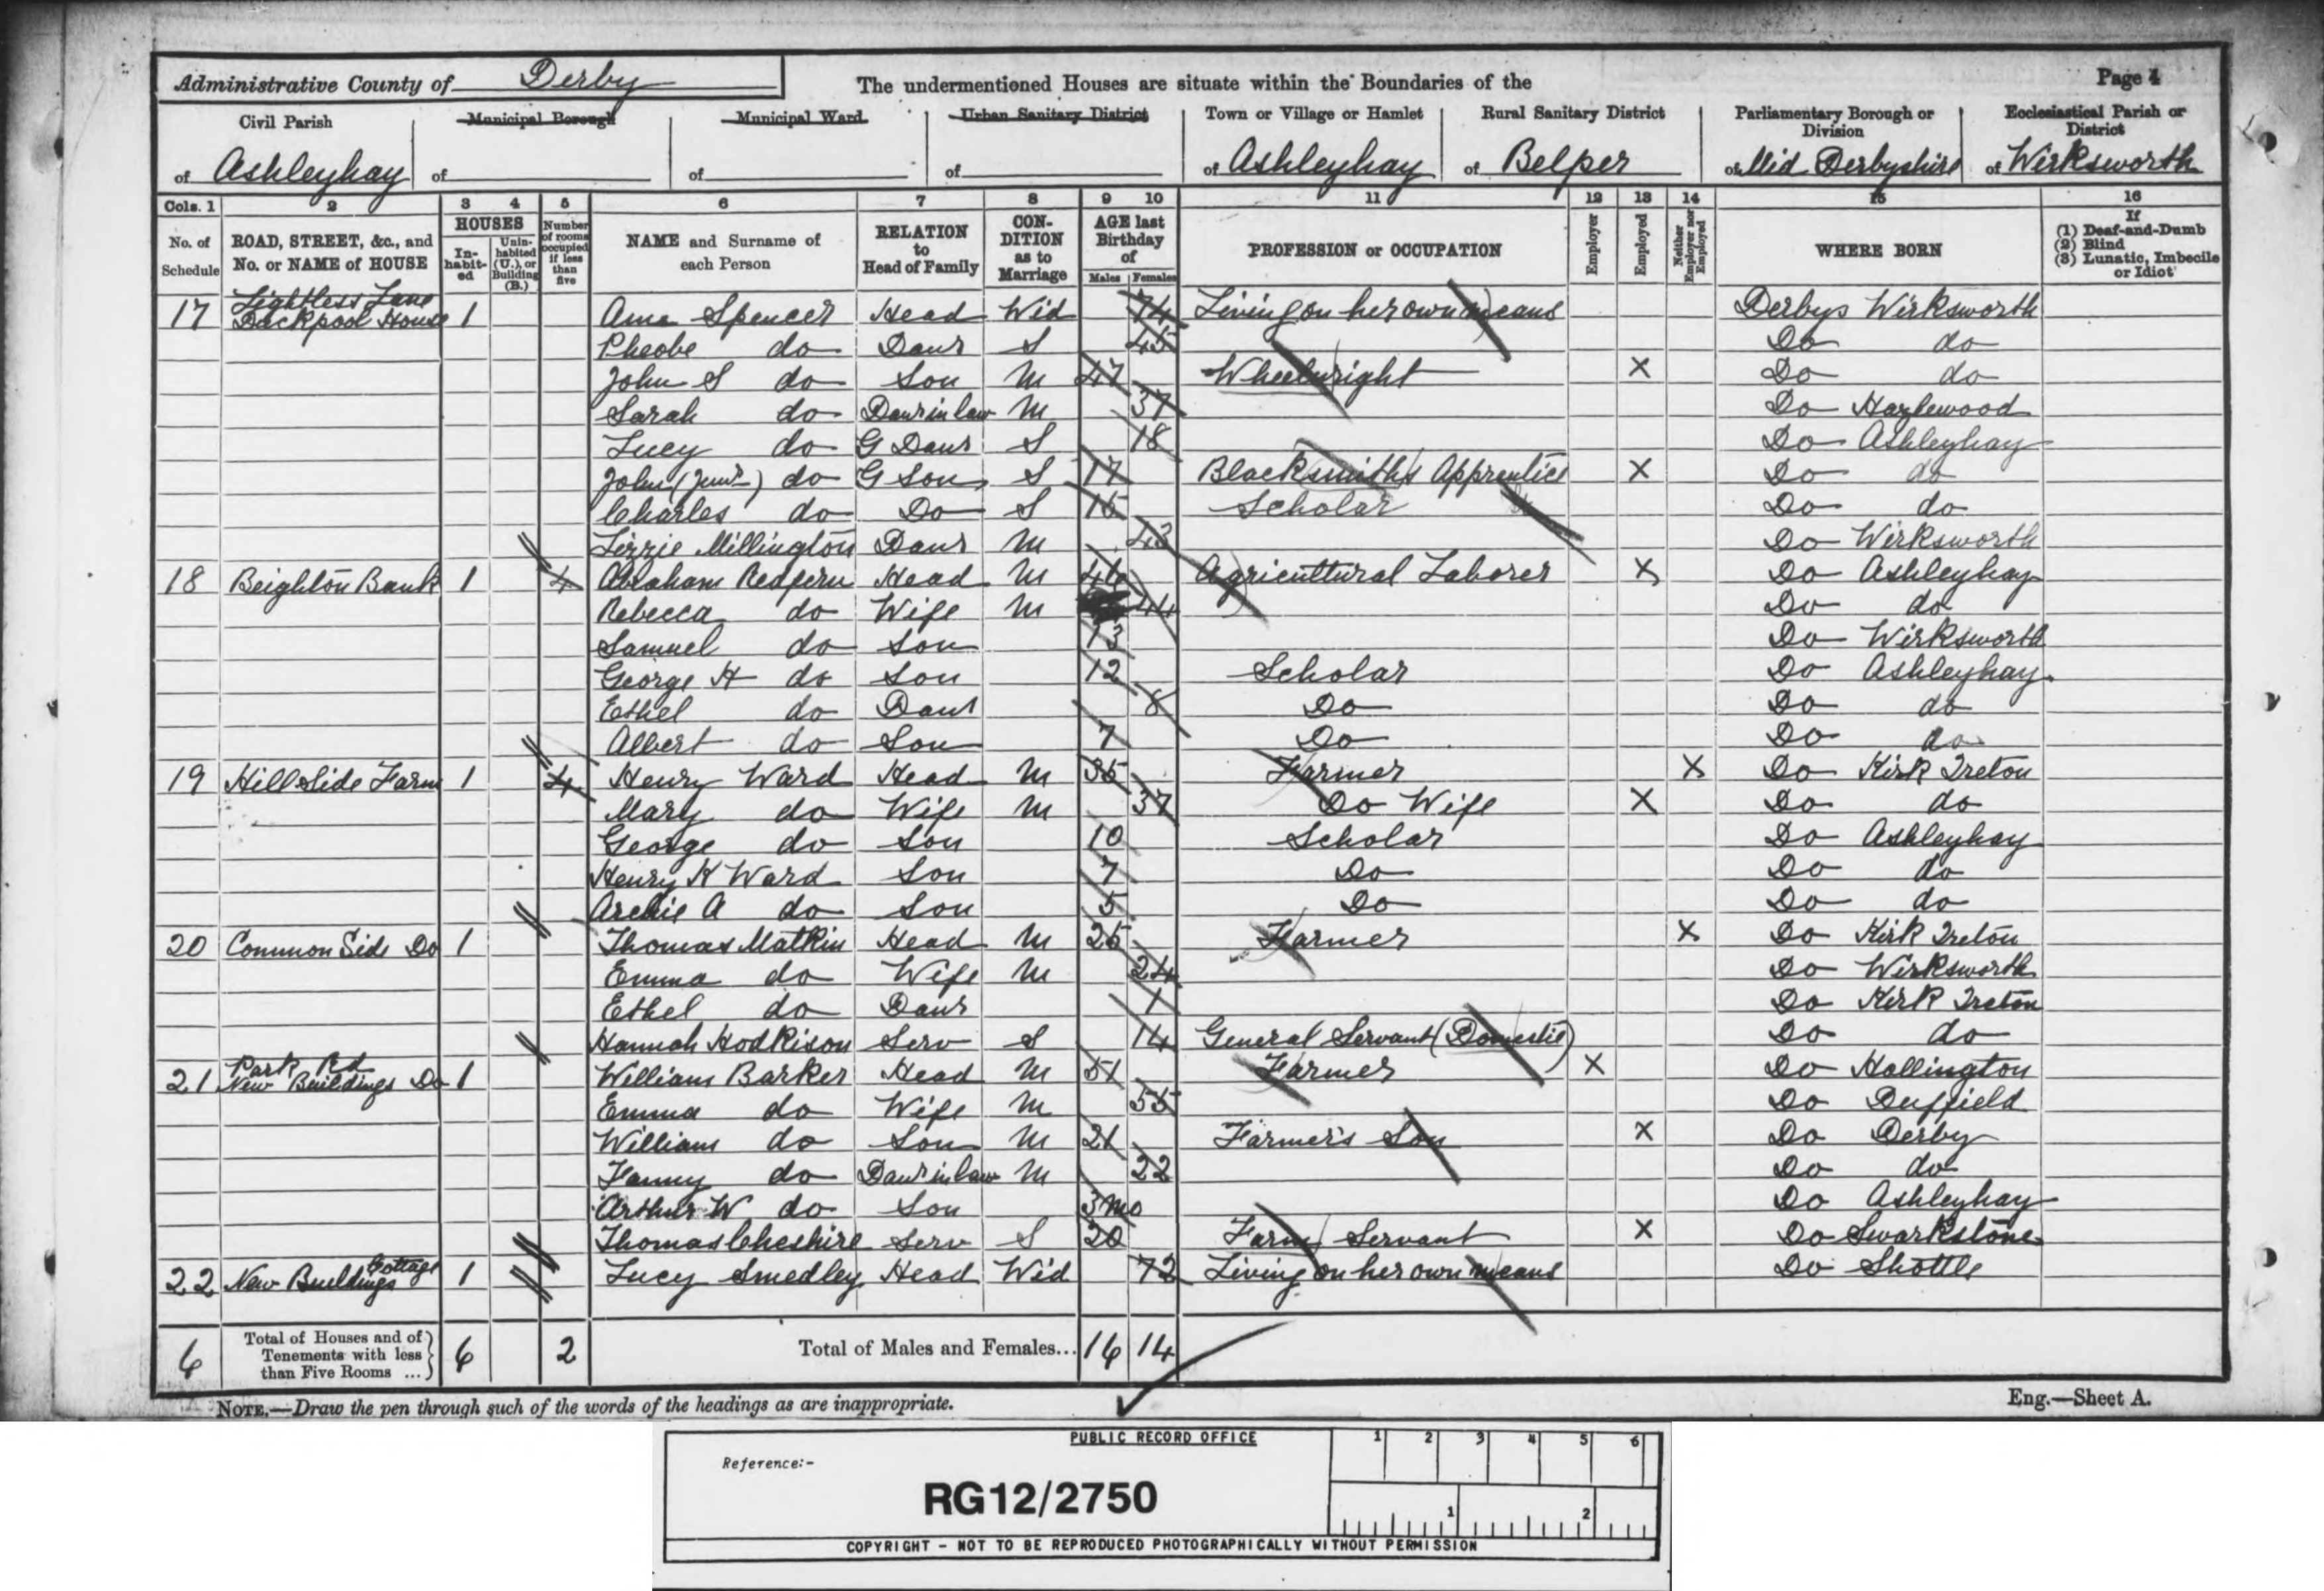 Administrative County of Derby The undermentioned Houses are situate within the Boundaries of the Page 4
Civil Parish Municipal Borough Municipal Ward Urban Sanitary District Town or Village or Hamlet Rural Sanitary District Parliamentary Borough or Division Ecclesiastical Parish or District
of Ashleyhay of of of of Ashleyhay of Belper of Mid Derbyshire of Wirksworth
Cols. 1 2 3 4 5 6 7 8 9 10 11 12 13 14 15 16
No. of Schedule ROAD, STREET, &c., and No. or NAME of HOUSE HOUSES Inhabited Uninhabited (U.), or Building (B.) Number of rooms occupied if less than five NAME and Surname of each Person RELATION to Head of Family CONDITION as to Marriage AGE last Birthday of Males Females PROFESSION or OCCUPATION Employer Employed Neither Employer nor Employed WHERE BORN If (1) Deaf-and-Dumb (2) Blind (3) Lunatic, Imbecile or Idiot
17 Lane House 1 Spencer Head Wid 74 Living on her own means Derbys Wirksworth
Pheobe do Daur S 45 Do do
John S do Son M 47 Wheelwright X Do do
Sarah do Daur in law M 37 Do Hazlewood
Lucy do G Daur S 18 Do Ashleyhay
John (Junr) do G Son S 17 Blacksmiths Apprentice X Do do
Charles do Do S 15 Scholar Do do
Lizzie Millington Daur M 43 Do Wirksworth
18 Beighton Bank 1 4 Abraham Redfern Head M Agricultural Laborer X Do Ashleyhay
Rebecca do Wife M 44 Do do
Samuel do Son 13 Do Wirksworth
George H do Son 12 Scholar Do Ashleyhay
Ethel do Daur 8 Do Do do
Albert do Son 7 Do Do do
19 Hill Side Farm 1 4 Henry Ward Head M 35 Farmer X Do Kirk Ireton
Mary do Wife M 37 Do Wife X Do do
George do Son 10 Scholar Do Ashleyhay
Henry H Ward Son 7 Do Do do
Archie A do Son 5 Do Do do
20 Common Side Do 1 Thomas Matkin Head M 25 Farmer X Do Kirk Ireton
Emma do Wife M 24 Do Wirksworth
Ethel do Daur 1 Do Kirk Ireton
Hannah Hodkison Serv S 14 General Servant (Domestic) Do do
21 Park Rd New Buildings Do 1 William Barker Head M 51 Farmer X Do Hollington
Emma do Wife M 55 Do Duffield
William do Son M 21 Farmer's Son X Do Derby
Fanny do Daur in law M 22 Do do
Arthur W do Son 3 mo Do Ashleyhay
Thomas Cheshire Serv S 20 Farm Servant X Do Swarkstone
22 New Buildings Cottage 1 Lucy Smedley Head Wid 72 Living on her own means Do Shottle
6 Total of Houses and of Tenements with less than Five Rooms ... 6 2 Total of Males and Females... 16 14
NOTE.—Draw the pen through such of the words of the headings as are inappropriate. Eng.—Sheet A.
PUBLIC RECORD OFFICE 1 2 3 4 5 6
Reference:-
RG12/2750
1 2
COPYRIGHT - NOT TO BE REPRODUCED PHOTOGRAPHICALLY WITHOUT PERMISSION